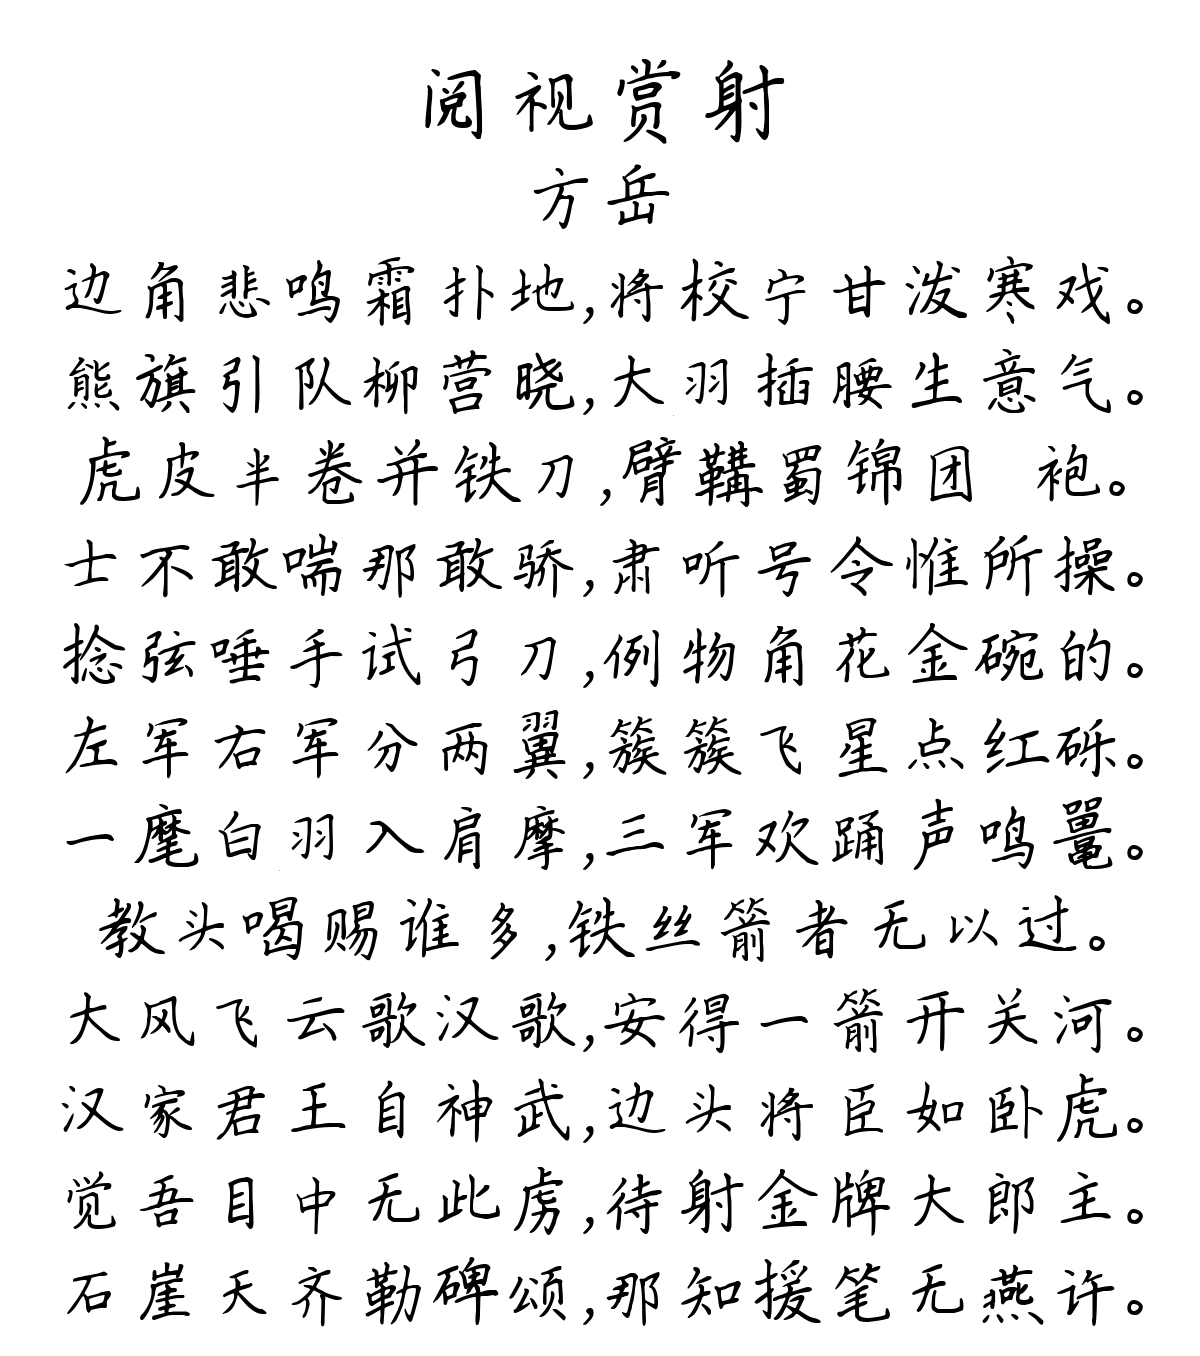 阅视赏射
方岳
边角悲鸣霜扑地,将校宁甘泼寒戏。
熊旗引队柳营晓,大羽插腰生意气。
虎皮半卷并铁刀,臂鞲蜀锦团 袍。
士不敢喘那敢骄,肃听号令惟所操。
捻弦唾手试弓刀,例物角花金碗的。
左军右军分两翼,簇簇飞星点红砾。
一麾白羽入肩摩,三军欢踊声鸣鼍。
教头喝赐谁多,铁丝箭者无以过。
大风飞云歌汉歌,安得一箭开关河。
汉家君王自神武,边头将臣如卧虎。
觉吾目中无此虏,待射金牌大郎主。
石崖天齐勒碑颂,那知援笔无燕许。